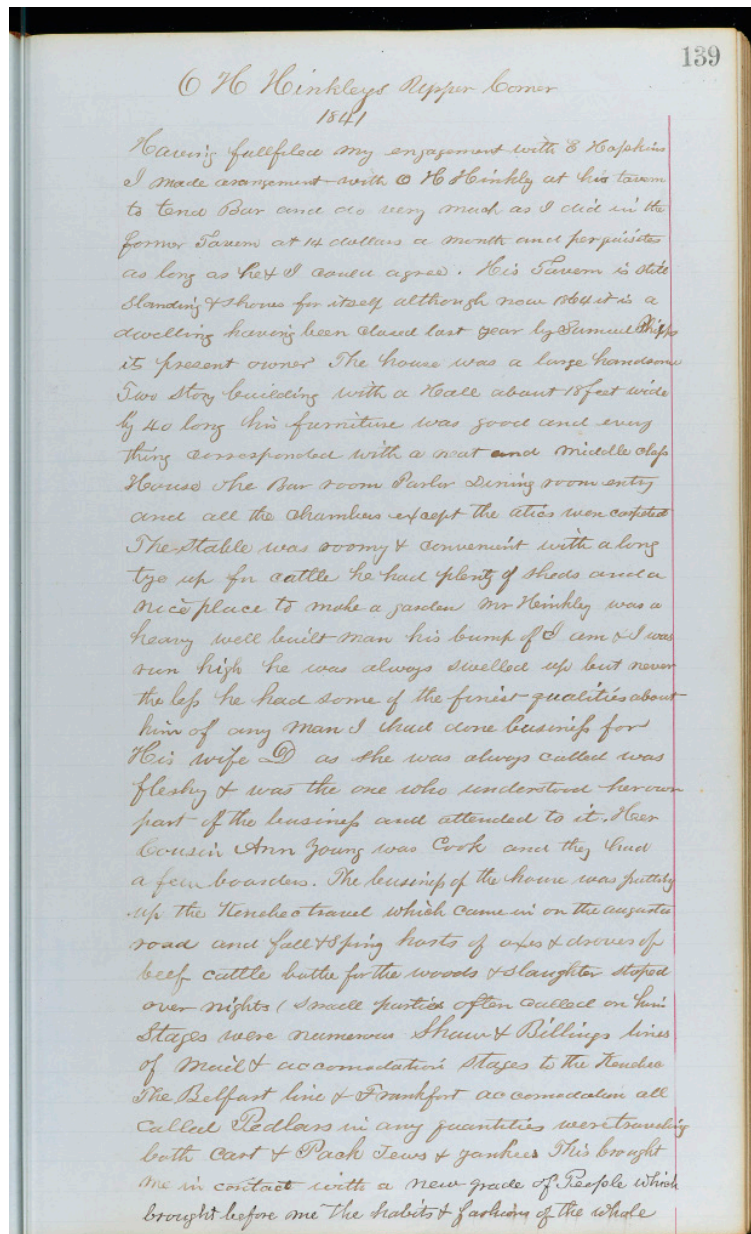 139
O H Hinkleys Upper Corner
1841
Having fullfiled my engagement with E Hopkins
I made arangement with O H Hinkly at his tavern
to tend Bar and do very much as I did in the
former Tavern at 14 dollars a month and perquisites
as long as he & I could agree. His Tavern is still
standing & shows for itself although now 1864 it is a
dwelling having been closed last year by Samuel Phipps
its present owner The house was a large handsome
Two Story building with a Hall about 18 feet wide
by 40 long his furniture was good and every
thing corresponded with a neat and middle class
House the Bar room Parlor Dining room entry
and all the Chambers except the atics were carpeted
The Stable was roomy & convenient with a long
tye up for cattle he had plenty of sheds and a
nice place to make a garden Mr Hinkley was a
heavy well built man his bump of I am & I was
run high he was always swelled up but never
the less he had some of the finest qualities about
him of any man I had done business for
His wife D as she was always called was
fleshy & was the one who understood her own
part of the business and attended to it. Heer
Cousin Ann Young was Cook and they had
a few boarders. The business of the house was putting
up the Kenebec travel which came in on the augusta
road and fall & Sping hosts of oxes & droves of
beef cattle bothe for the woods & slaughter stoped
over nights (Small parties often called on him
Stages were numerous Shaw & Billings lines
of mail & accomodation stages to the Kenebec
The Belfast line & Frankfort accomodation all
called Pedlars in any quantities were traveling
both Cart & Pack Jews & yankees This brought
me in contact with a new grade of People which
brought before me the habits & fashions of the whole